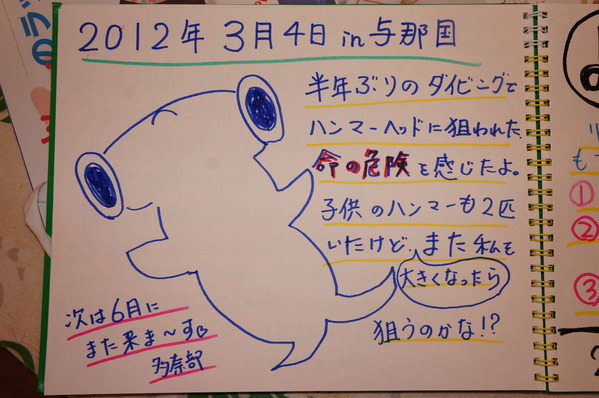 2012年 3月4日 in 与那国
半年ぶりの ダイビングで
ハンマーヘッドに狙われた
命の危険を感じたよ。
子供のハンマーも2匹
いたけど、また私を
大きくなったら
狙うのかな!?
次は6月に
また来ま〜す
多奈部
①
②
③